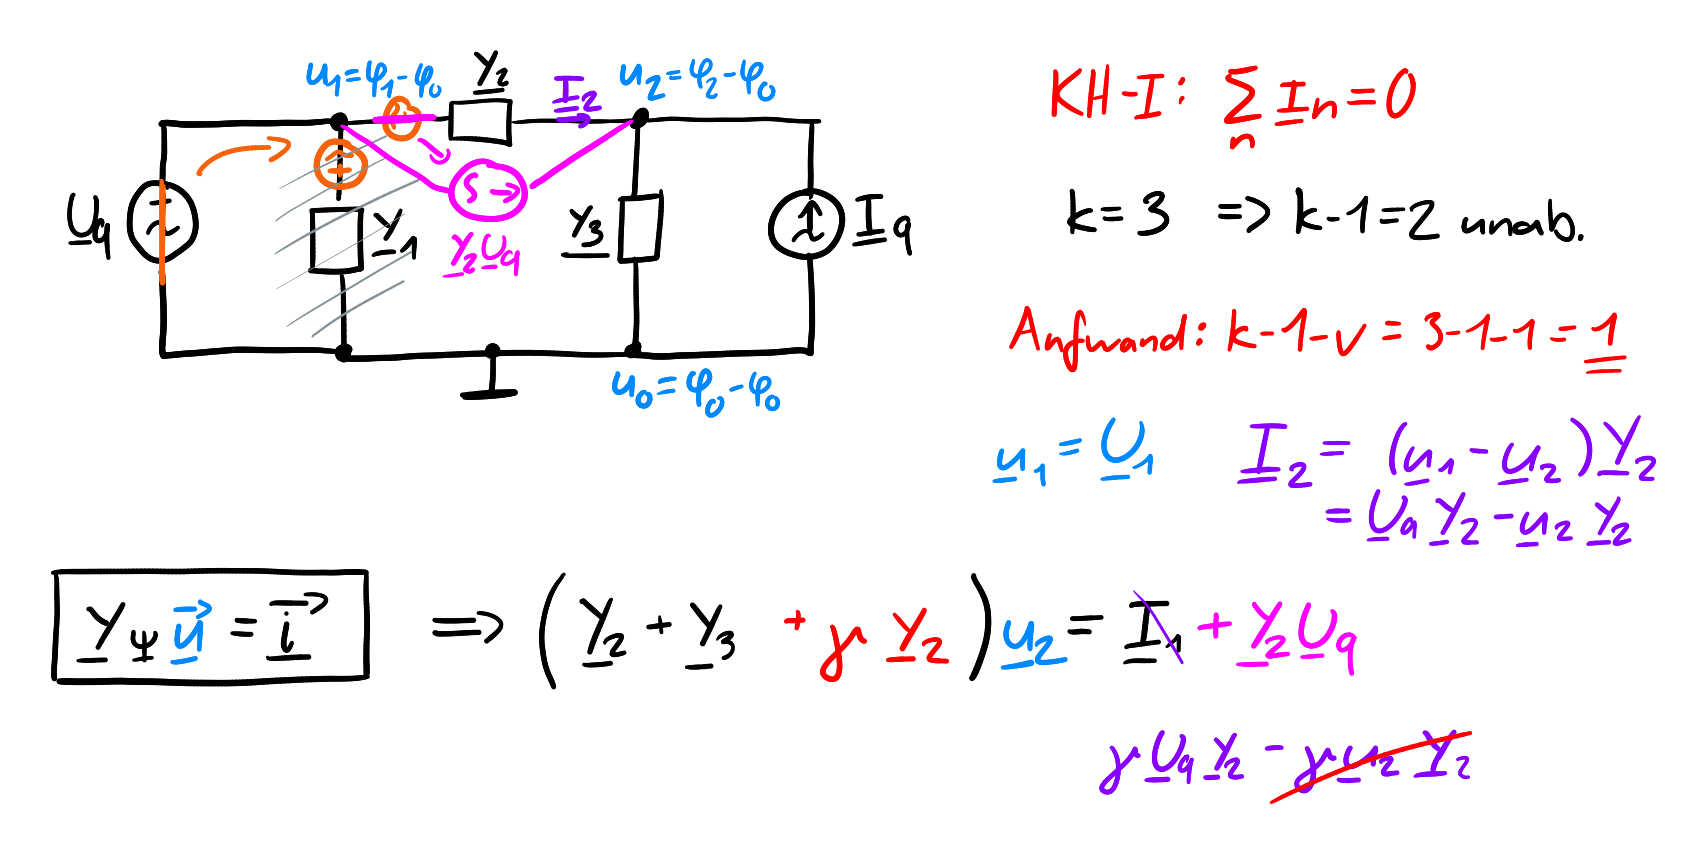 u₁=φ₁-φ₀
Y₂
I₂
u₂=φ₂-φ₀
U_q
Y₁
Y₂U_q
Y₃
I_q
u₀=φ₀-φ₀
KH-I: ∑_n I_n=0
k=3 => k-1=2 unab.
Aufwand: k-1-v = 3-1-1=1
u₁=U₁
I₂= (u₁-u₂)Y₂
=U_q Y₂-u₂ Y₂
Y_ψ u⃗=i⃗ => (Y₂+Y₃ +γ Y₂)u₂=I₁+Y₂U_q
γU_qY₂-γu₂Y₂